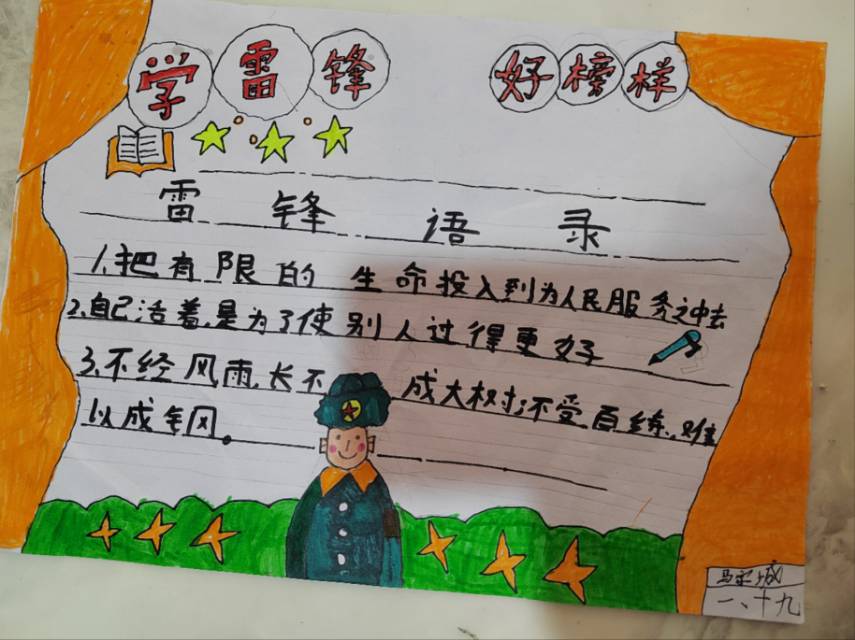 学雷锋 好榜样
雷锋语录
1.把有限的生命投入到为人民服务之中去
2.自己活着,是为了使别人过得更好
3.不经风雨,长不成大树;不受百练,难
以成钢。
一、十九